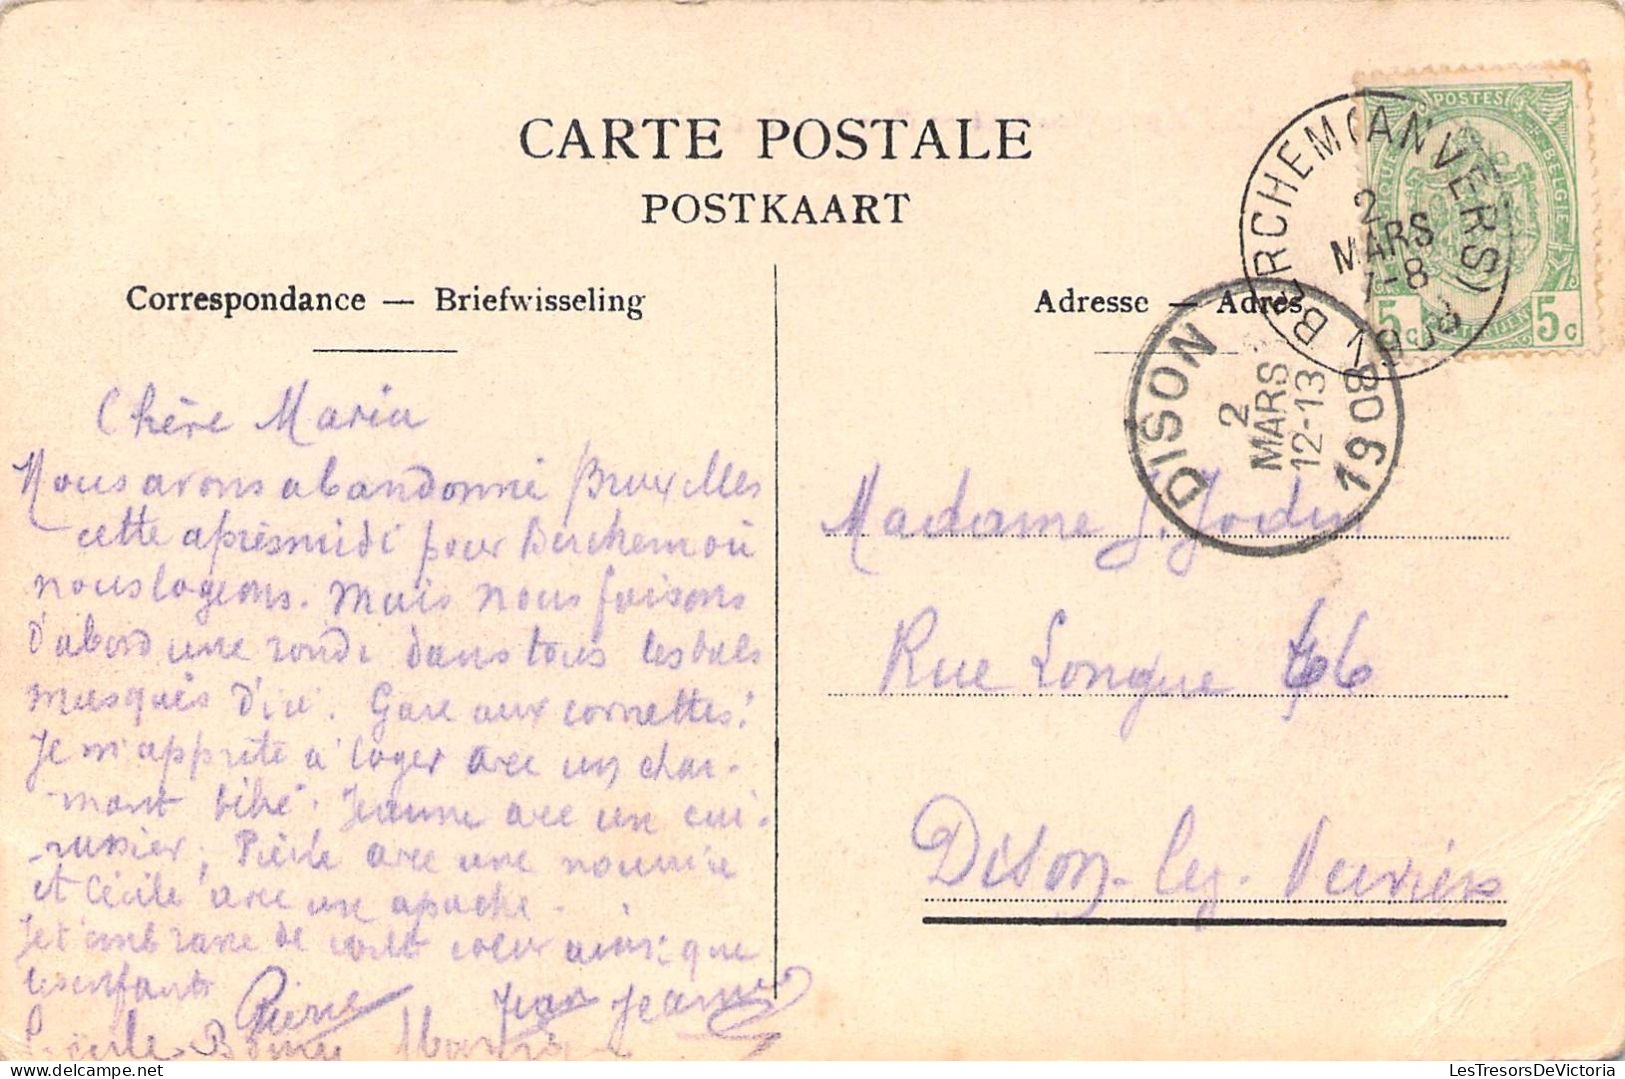 CARTE POSTALE
POSTKAART
Correspondance — Briefwisseling
Chère Maria
Nous avons abandonné Bruxelles
cette aprèsmidi pour Berchem où
nous logeons. Mais nous faisons
d'abord une ronde dans tous les bals
masqués d'ici. Gare aux cornettes!
Je m'apprête à loger avec un char-
mant bébé. Jeanne avec un cui-
rassier, Pierre avec une nourrice
et Cécile avec une apache.
Je t'embrasse de tout coeur ainsi que
les enfants
Pierre Jean Jeanne
Cécile Maria
Adresse — Adres
POSTES
BELGIE
5c 5c
BERCHEM (ANVERS)
2
MARS
7-8
1908
DISON
2
MARS
12-13
1908
Madame J. Jodin
Rue Longue 66
Dison-lez-Verviers
LesTresorsDeVictoria